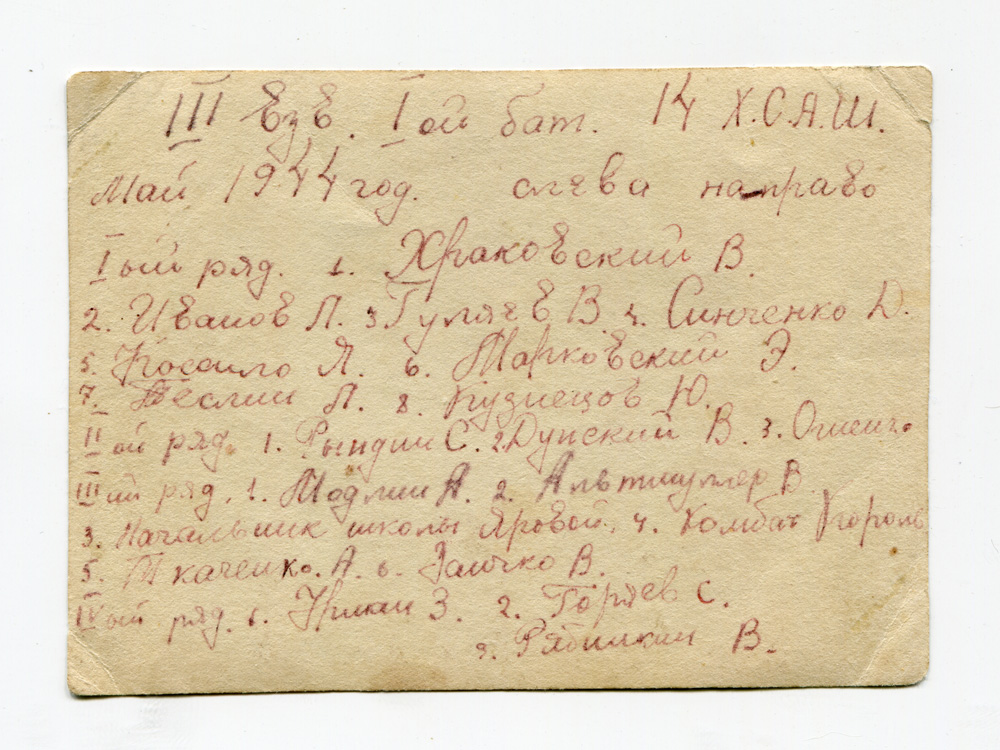 III ВзВ. Iой бат. 14 Х.С.А.Ш.
Май 1944 год. слева направо
Iый ряд. 1. Храковский В.
2. Иванов Л. 3 Гуляев В. 4. Синченко Д.
5. Я. 6. Марковский Э.
7. Теслин Л. 8. Кузнецов Ю.
IIой ряд. 1. Рындин С. 2. Дунский В. 3.
IIIий ряд. 1. Модлин А. 2. Альтшуллер В.
3. Начальник школы Яровой. 4. Комбат Король
5. Ткаченко. А. 6. Заичко В.
IVый ряд. 1. З. 2. Горяев С.
3. Рябинкин В.